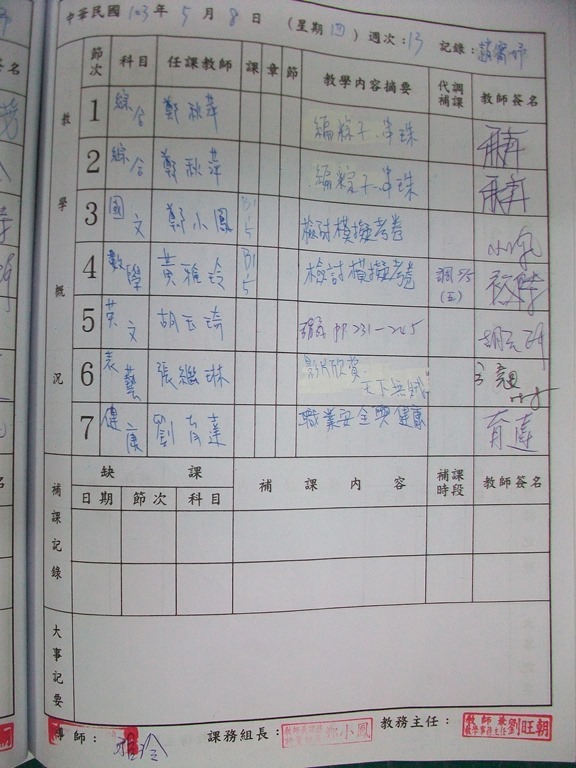 中華民國 103 年 5 月 8 日 (星期四) 週次:13 記錄:
教學概況
節次 科目 任課教師 課 章 節 教學內容摘要 代調補課 教師簽名
1 綜合 鄭秋萍 編粽子、串珠
2 綜合 鄭秋萍 編粽子、串珠
3 國文 鄭小鳳 B1 5 檢討模擬考卷
4 數學 黃雅玲 B1 5 檢討模擬考卷 (五)
5 英文 胡玉琦 PP 231-245
6 表藝 張繼琳 影片欣賞 天下無賊
7 健康 劉育達 職業安全與健康 育達
補課記錄
缺課 補課內容 補課時段 教師簽名
日期 節次 科目
大事記要
導師: 雅玲 課務組長: 鄭小鳳 教務主任: 教師兼教學事務主任 劉旺朝